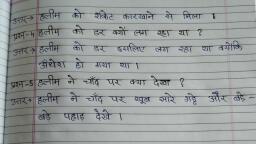 उत्तर→ हलीम को रॉकेट कारखाने में मिला ।
प्रश्न-4 हलीम को डर क्यों लग रहा था ?
उत्तर→ हलीम को डर इसलिए लग रहा था क्योंकि
अंधेरा हो गया था ।
प्रश्न-5 हलीम ने चाँद पर क्या देखा ?
उत्तर→ हलीम ने चाँद पर खूब सारे गड्ढे और बड़े
बड़े पहाड़ देखे ।